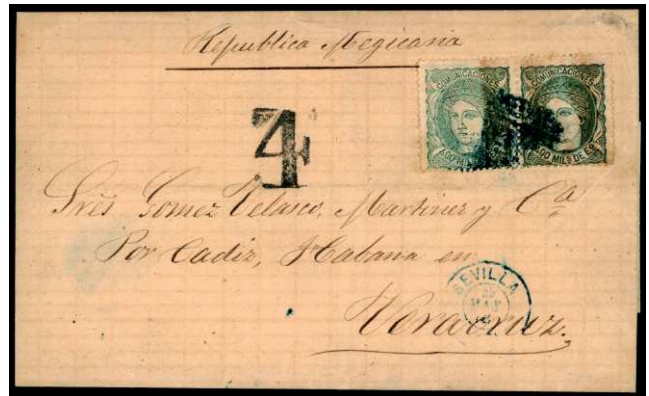 Republica Megicana
COMUNICACIONES
COMUNICACIONES
400 MILS DE ES
4
Sres Gomez Velasco, Martinez y Cª
Por Cadiz, Habana en
SEVILLA
Veracruz.